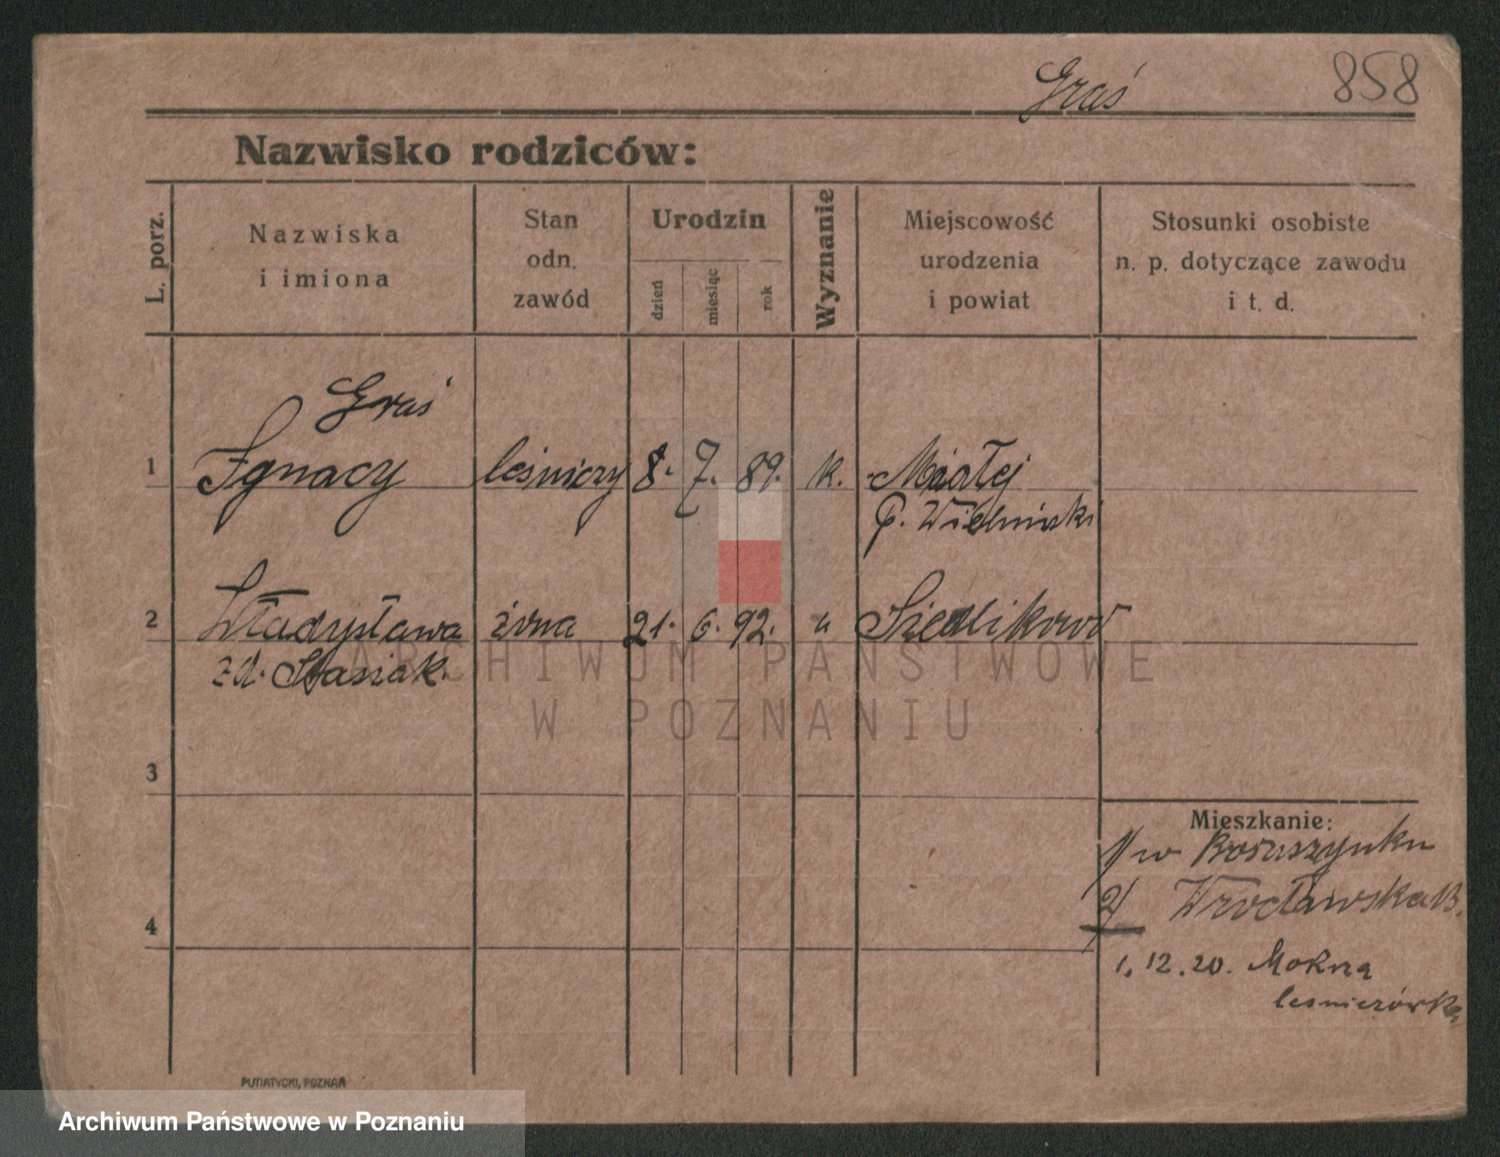 Graś 858
Nazwisko rodziców:
L. porz.
Nazwiska
i imiona
Stan
odn.
zawód
Urodzin
dzień
miesiąc
rok
Wyznanie
Miejscowość
urodzenia
i powiat
Stosunki osobiste
n. p. dotyczące zawodu
i t. d.
Graś
1 Ignacy leśniczy 8. 7. 89. k. Miałej
p. Wieluński
2 Władysława żona 21. 6. 92. " Siedlikowo
zd. Stasiak.
ARCHIWUM PAŃSTWOWE
W POZNANIU
3
Mieszkanie:
1/ w Boruszynku
2/ Wrocławska 13.
4
1.12.20. Mokrza
leśniczówka
PUTIATYCKI, POZNAŃ
Archiwum Państwowe w Poznaniu